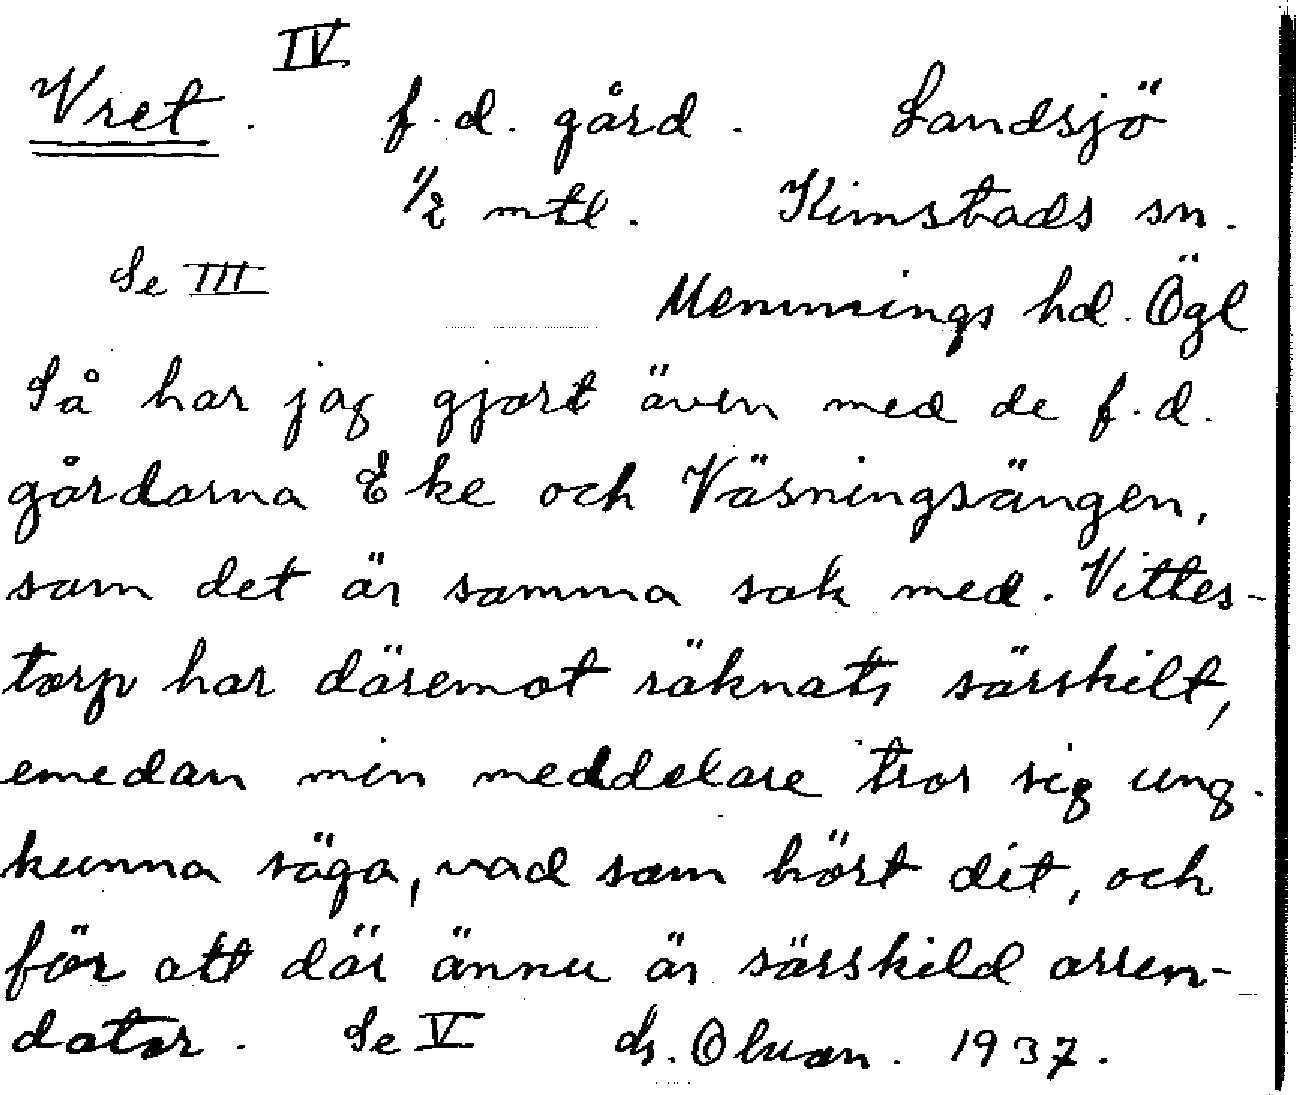 IV
Vret. f.d. gård. Landsjö
1/2 mtl. Kimstads sn.
Se III
Memmings hd. Ögl
Så har jag gjort även med de f.d.
gårdarna Eke och Väsningsängen,
som det är samma sak med. Vittes-
torp har däremot räknats särskilt,
emedan min meddelare tror sig ung.
kunna säga, vad som hört dit, och
för att där ännu är särskild arren-
dator. Se V 1937.